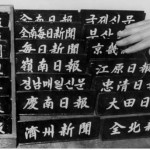 全南日報
全南每日新聞
每日新聞
嶺南日報
경남매일신문
慶南日報
濟州新聞
국제신문
부산
京畿
江原日報
忠清日
大田日
全北